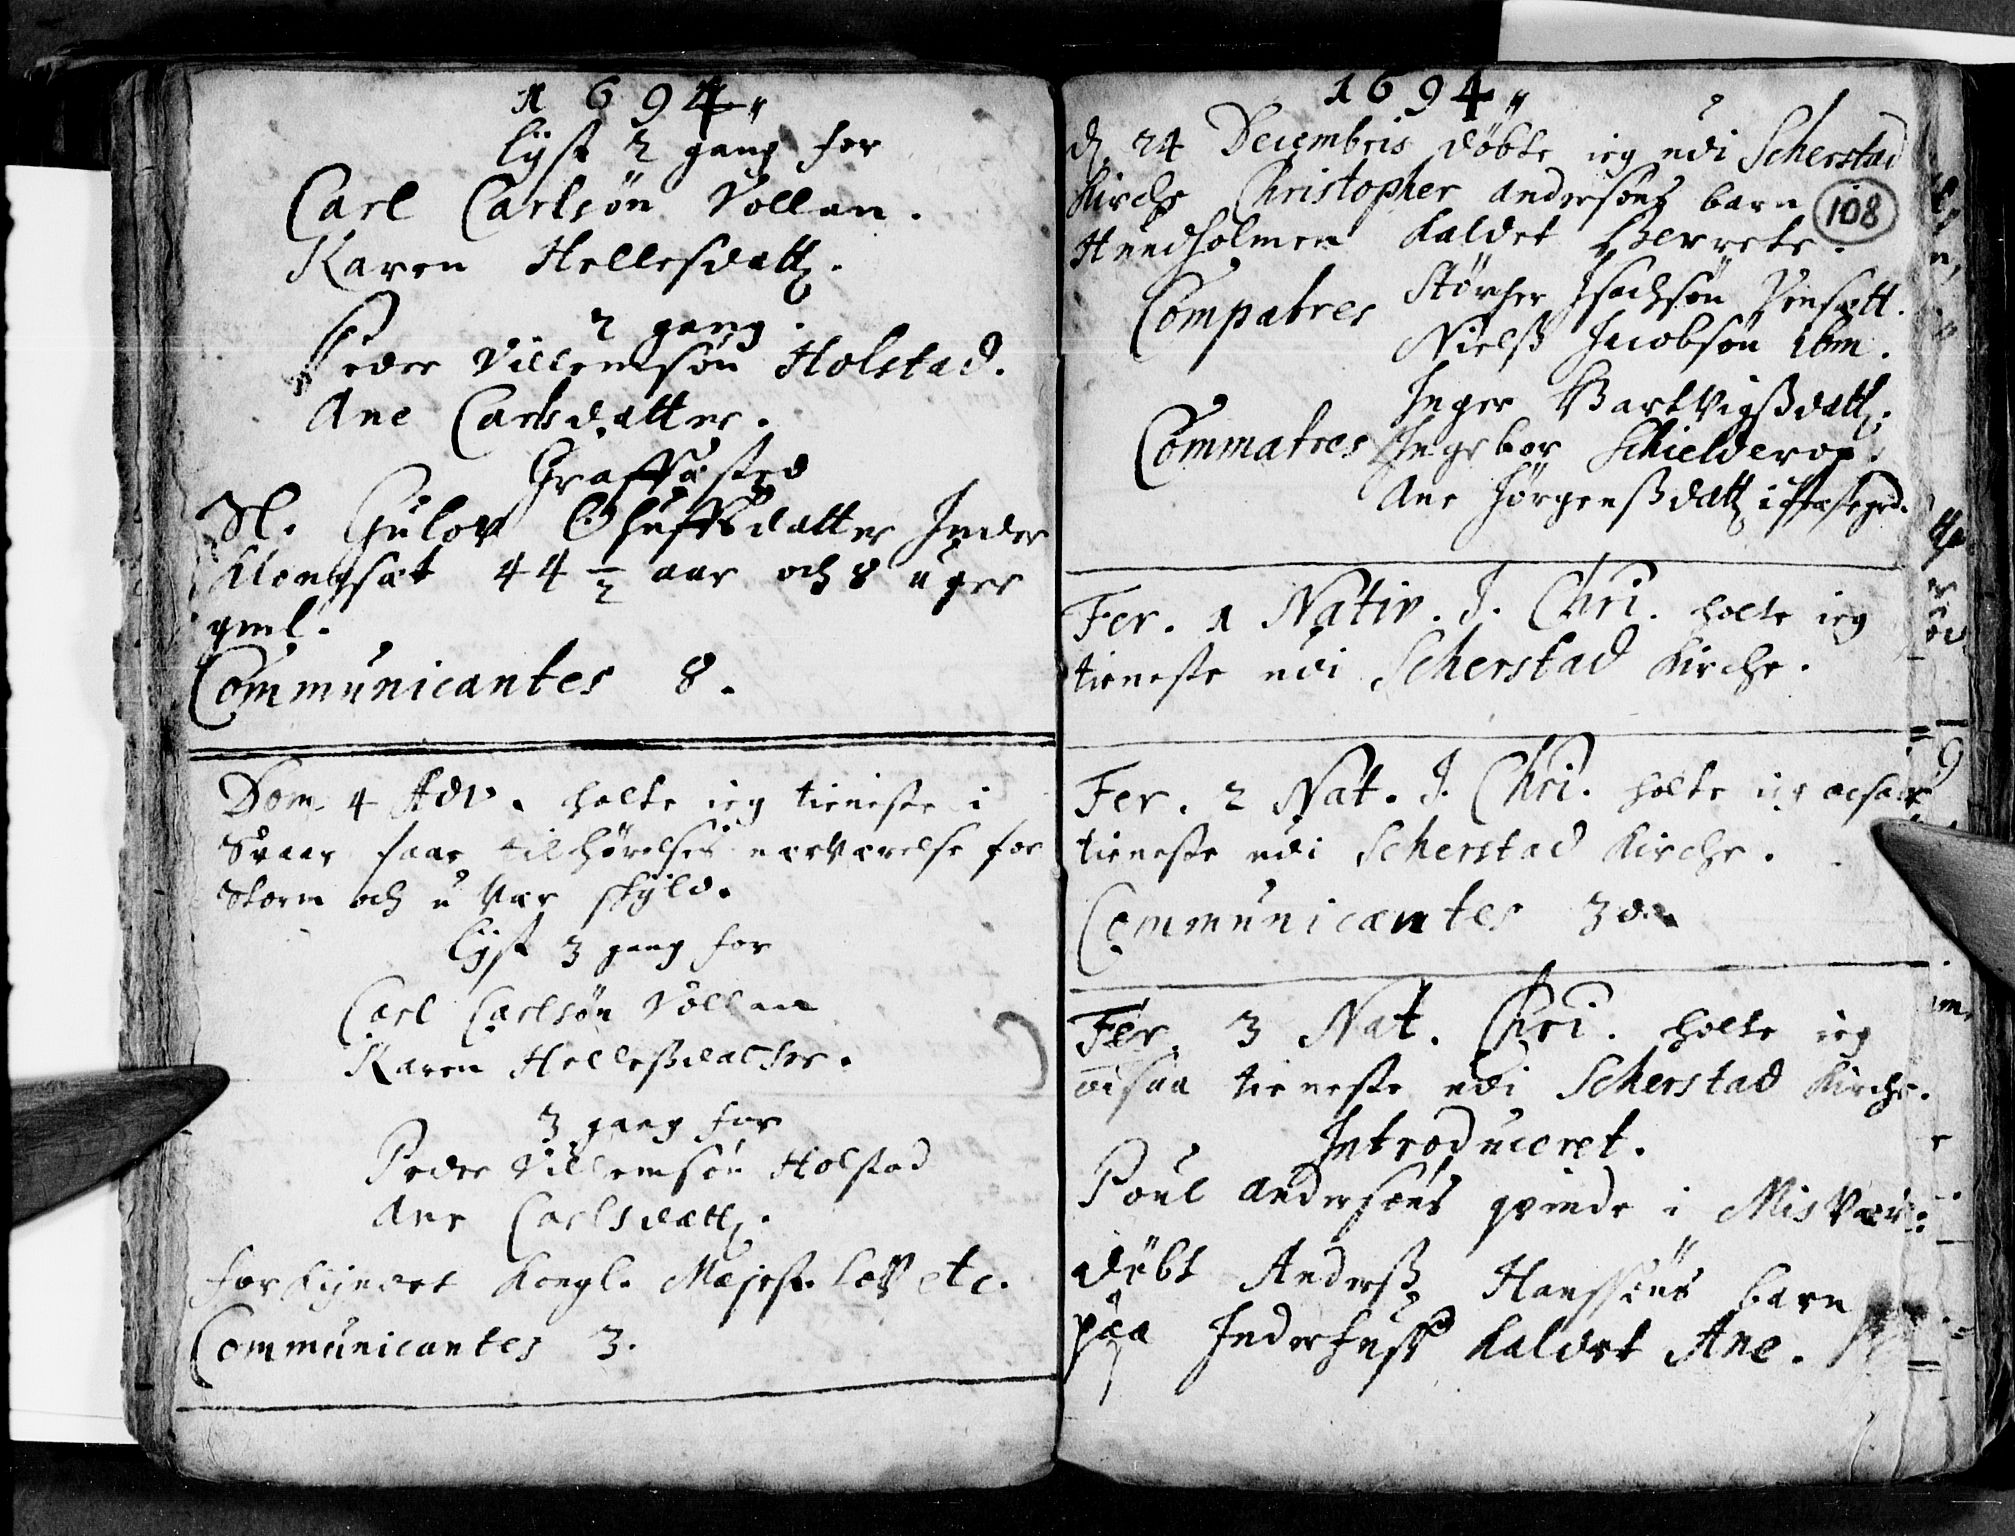 1694
lyst 2 gang for
Carl Carlsøn Vollan.
Karen Hellesdatt.
2 gang.
Peder Villemsøn Holstad.
Ane Carlsdatter.
Graffæsted
Sl. Gulov Oluffsdatter Inder
Klongsæt 44 1/2 aar och 8 uger
gml.
Communicantes 8.
Dom. 4 Adv. holte ieg tieneste i
Svaar faae tilhørelses nærværelse for
Storm och u Vær skyld.
lyst 3 gang for
Carl Carlsøn Vollan
Karen Hellesßdatter.
3 gang for
Peder Villemsøn Holstad
Ane Carlsdatt.
forkyndet Kongl. Majest. lov etc.
Communicantes 3.
1694
d. 24 Decembris døbte ieg udi Scherstad
Kirche Christopher Andersøns barn
108
Hundholmen kaldet Berrete.
Compatres Størcher Isachsøn Vensætt.
Nielß Jacobsøn ibm.
Inger Hartvigßdatt.
Commatres Ingebor Schielderop.
Ane Jørgenßdatt i
Fer. 1 Nativ. J. Chri. holte ieg
tieneste udi Scherstad Kirche.
Fer. 2 Nat. J. Chri. holte ieg ocsaa
tieneste udi Scherstad Kirche.
Communicantes
Fer. 3 Nat. Chri. holte ieg
ocsaa tieneste udi Scherstad Kirche.
Introduceret.
Poul Andersøns qvinde i Misvær:
døbt Anderß Hanssøns barn
paa Inderhuss kaldet Ane.